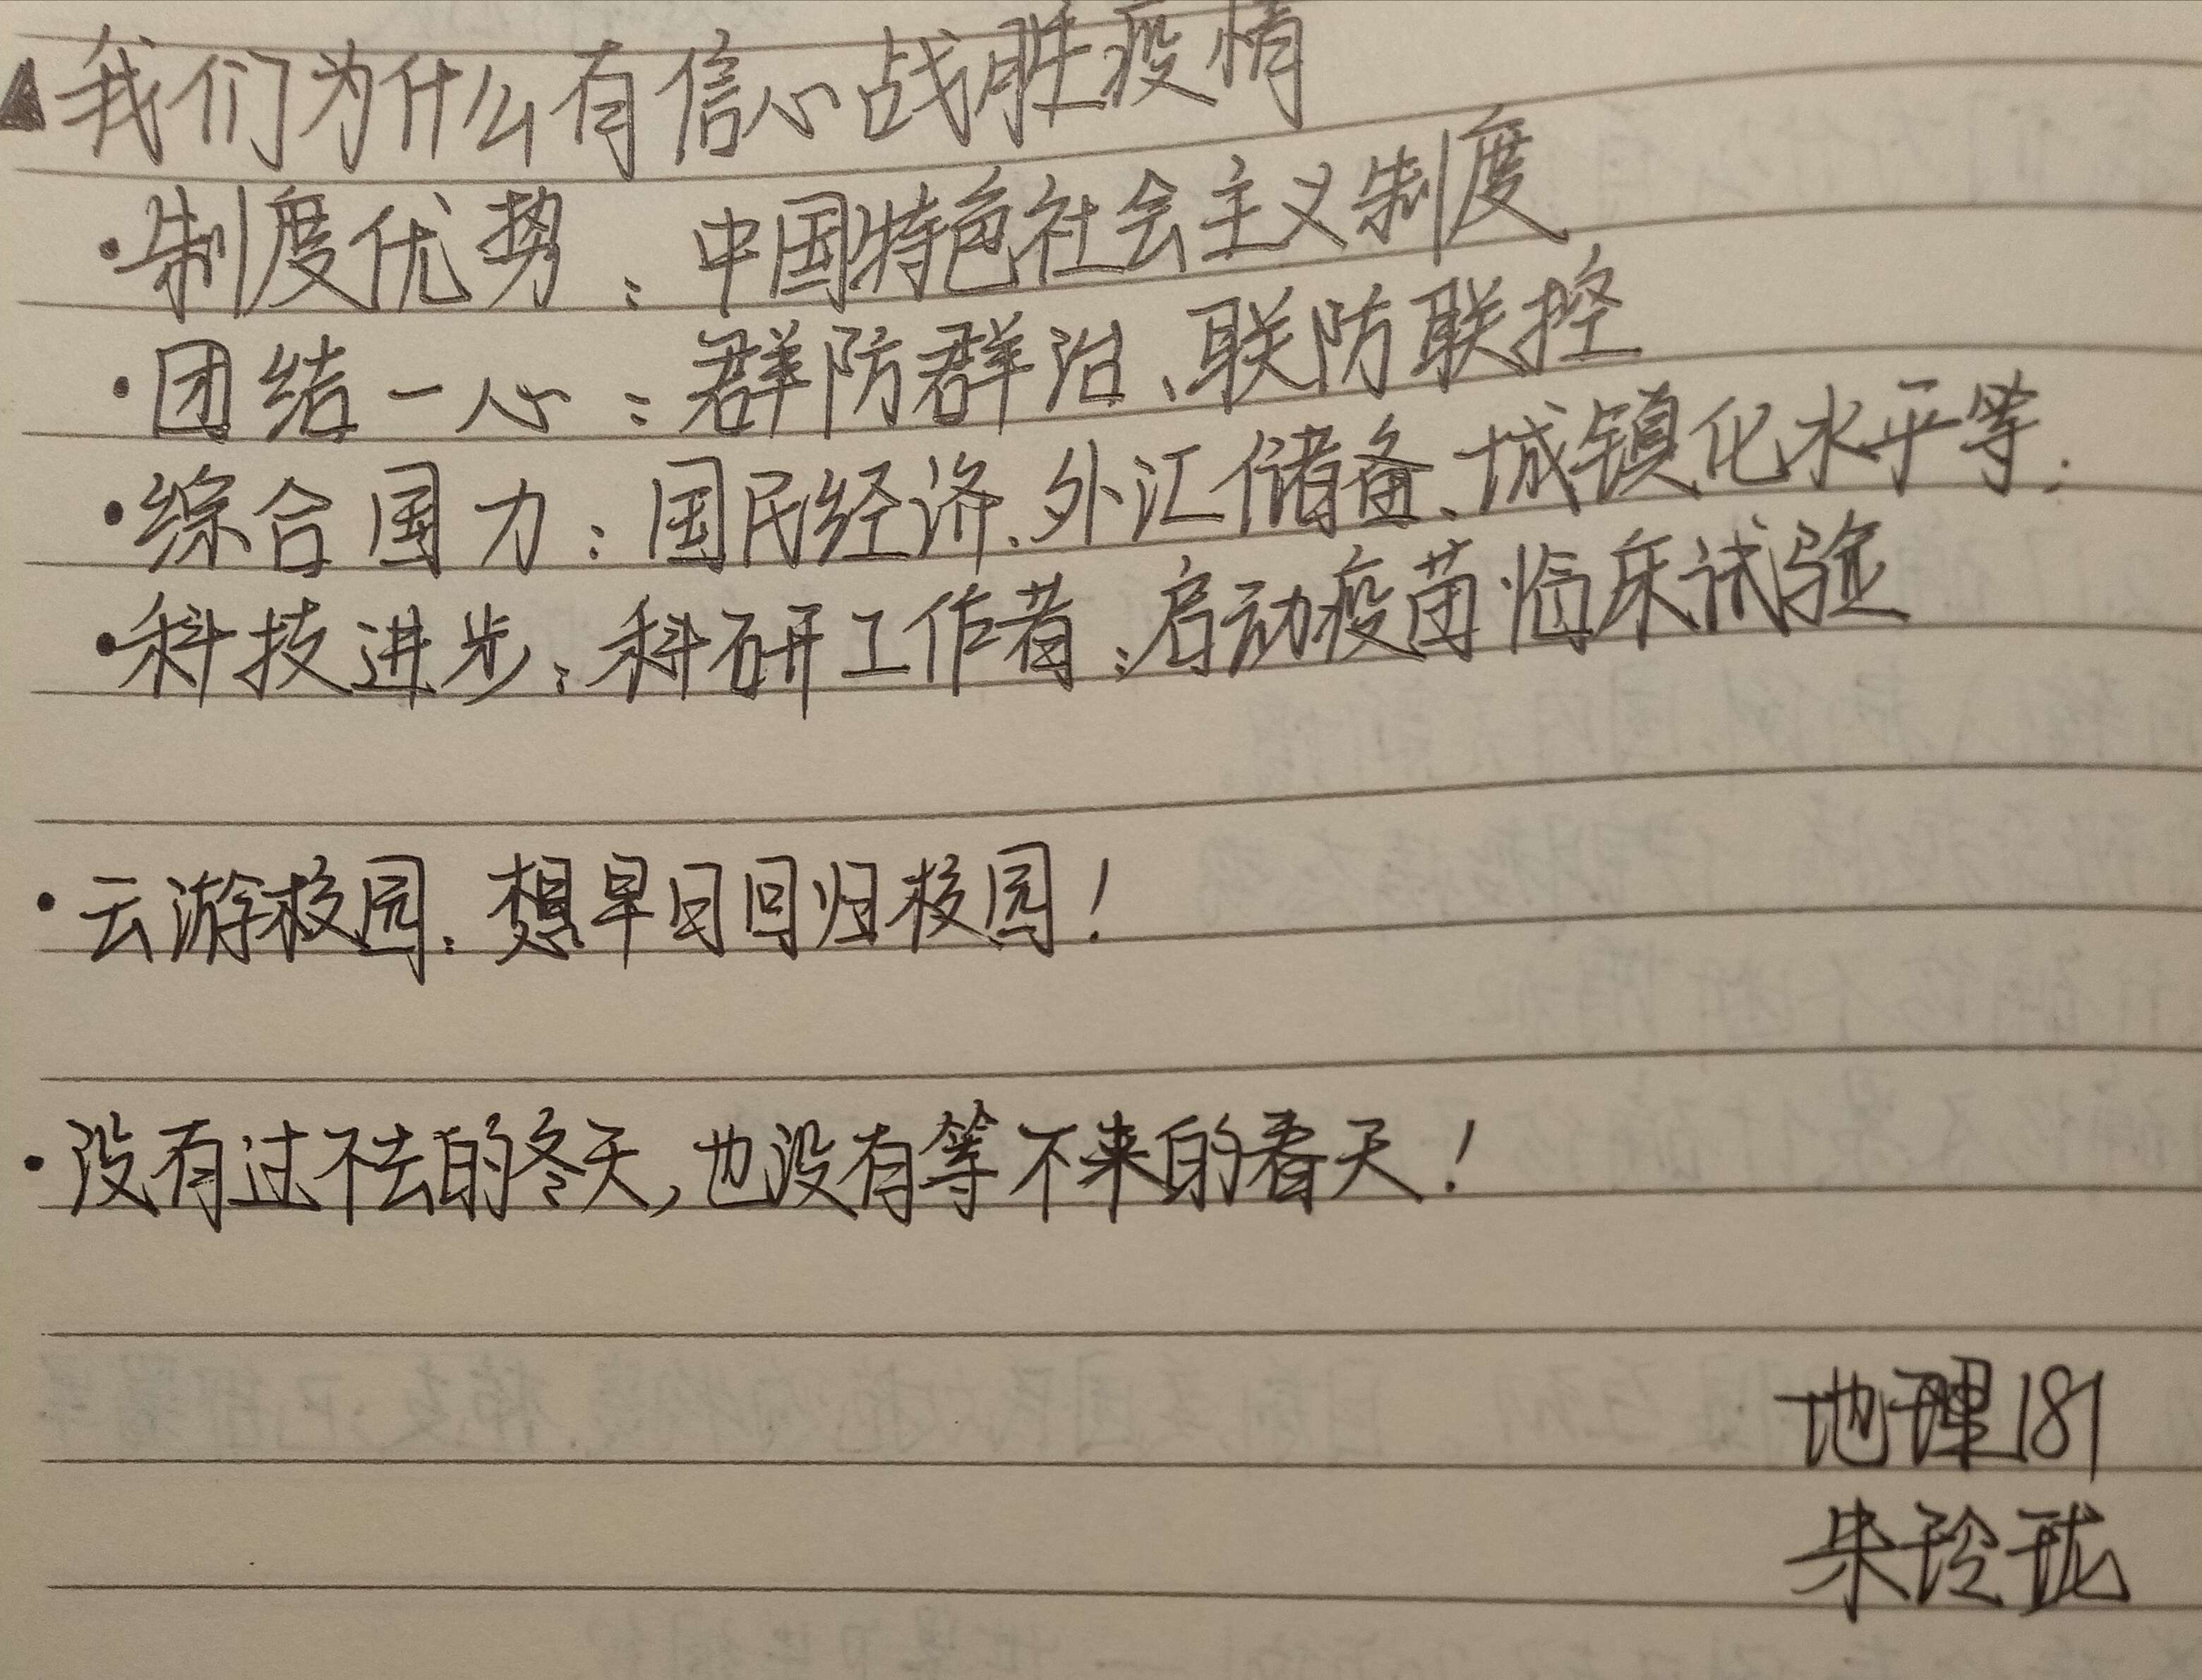 ▲我们为什么有信心战胜疫情
·制度优势：中国特色社会主义制度
·团结一心：群防群治、联防联控
·综合国力：国民经济、外汇储备、城镇化水平等．
·科技进步：科研工作者：启动疫苗临床试验
·云游校园：想早日回归校园！
·没有过不去的冬天，也没有等不来的春天！
地理181
朱玲珑